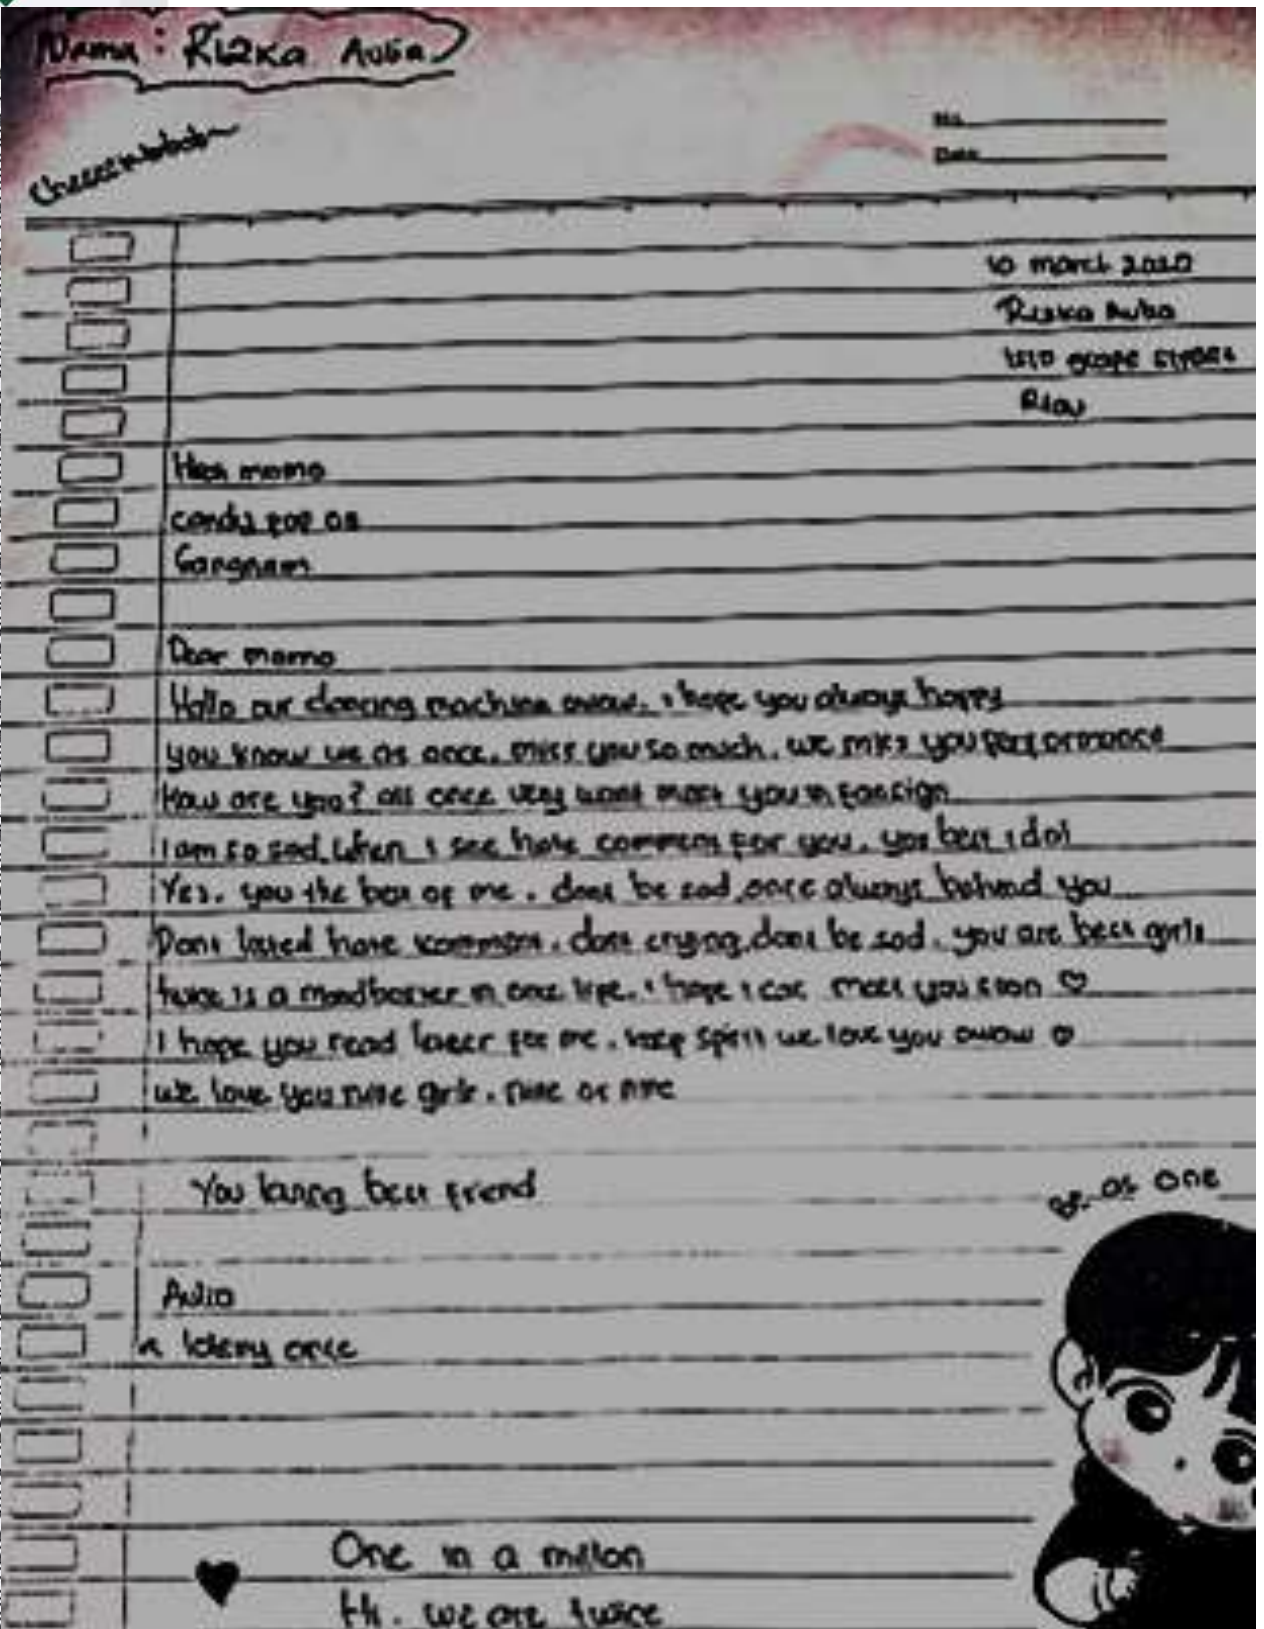 Nama : Rizka Aulia
No
Date
10 march 2020
Rizka Aulia
grape street
Riau
momo
candy pop
Gangnam
Dear momo
Hallo our dancing machine owow. i hope you always happy
you know we as once. miss you so much. we miss you performance
How are you? all once very want meet you in fansign
I am so sad when i see hate comment for you. you best idol
Yes. you the best of me. dont be sad once always behind you
Dont hate comment. dont crying dont be sad. you are best girls
twice is a moodboster in once life. i hope i can meet you soon ♡
I hope you read later for me. keep spirit we love you owow ♡
we love you nine girls. nine or nine
You best friend
Aulia
once
Be as one
One in a millon
Hi. we are twice